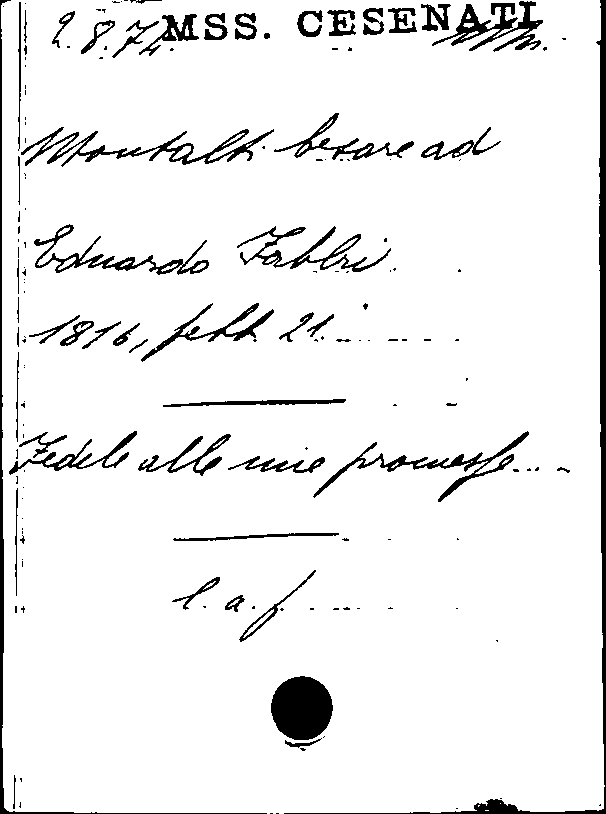 MSS. CESENATI
2.8.72
Montalti Cesare ad
Eduardo Fabbri
1816, febb. 21.
Fedele alle mie promesse...
l. a. f.